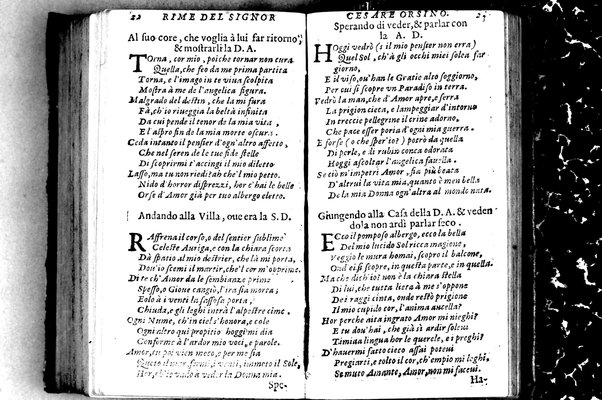 22 RIME DEL SIGNOR
Al suo core, che voglia à lui far ritorno,
& mostrarli la D. A.
TOrna, cor mio, poiche tornar non cura
Quella, che feo da me prima partita
Torna, e l'imago in te viua scolpita
Mostra à me de l'angelica figura.
Malgrado del destin, che la mi fura
Fà, ch'io riueggia la beltà infinita
Da cui pende il tenor de la mia vita,
E l'aspro fin de la mia morte oscura.
Ceda intanto il pensier d'ogn'altro affetto,
Che nel seren de le tue fide stelle
Di scoprirmi t'accingi il mio diletto
Lasso, ma tu non riedi? ah che'l mio petto.
Nido d'horror disprezzi, hor c'hai le belle
Orse d'Amor già per tuo albergo eletto.
Andando alla Villa, oue era la S. D.
RAffrena il corso, o del sentier sublime
Celeste Auriga, e con la chiara scorta
Dà spatio al mio destrier, che là mi porta,
Dou'io scemi il martir, che'l cor m'opprime.
Di te ch'Amor da le sembianze prime
Spesso, o Gioue cangiò, l'ira sia morta;
Eolo à i venti la sassosa porta
Chiuda, e gli leghi intrà l'alpestre cime.
Ogni Nume, ch'in ciel s'honora, e cole
Ogni altro qui propitio hoggi mi dia
Conforme à l'ardor mio voci, e parole.
Amor, tu poi vien meco, e per me sia
Queto il mar, fermi, i venti, immoto il Sole,
Hor, ch'io vado à veder la Donna mia.
Spe-
CESARE ORSINO. 23
Sperando di veder, & parlar con
la A. D.
HOggi vedrò (s il mio pensier non erra)
Quel Sol, ch'à gli occhi miei solea far
giorno,
E il viso, ou'han le Gratie alto soggiorno,
Per cui si scopre vn Paradiso in terra.
Vedrò la man, che d'Amor apre, e serra
La prigion cieca, e lampeggiar d'intorno
In treccie pellegrine il crine adorno,
Che pace esser poria d'ogni mia guerra.
E forse (o che sper'io?) potrò da quella
Di perle, e di rubin conca odorata
Hoggi ascoltar l'angelica fauella.
Se ciò m'impetri Amor, sia più beata
D'altrui la vita mia, quanto è men bella
De la mia Donna ogn'altra al mondo nata.
Giungendo alla Casa della D. A. & veden
dola non ardì parlar seco.
ECco il pomposo albergo, ecco la bella
Del mio lucido Sol ricca magione,
Veggio le mura homai, scopro il balcone,
Ond'ei si scopre, in questa parte, e in quella.
Ma che dich'io? non è la chiara stella
Di lui, che tutta lieta à me s'oppone
Dei raggi cinta, onde restò prigione
Il mio cupido cor, l'anima ancella?
Hor perche aita ingrato Amor mi nieghi?
E tu dou'hai, che già ìi ardir soleui
Timida lingua hor le querele, e i preghi?
D'hauermi fatto cieco assai poteui
Pregiarti, e tolto il cor, ch'empio mi leghi,
Se muto Amante, Amor, non mi faceui.
Ha-